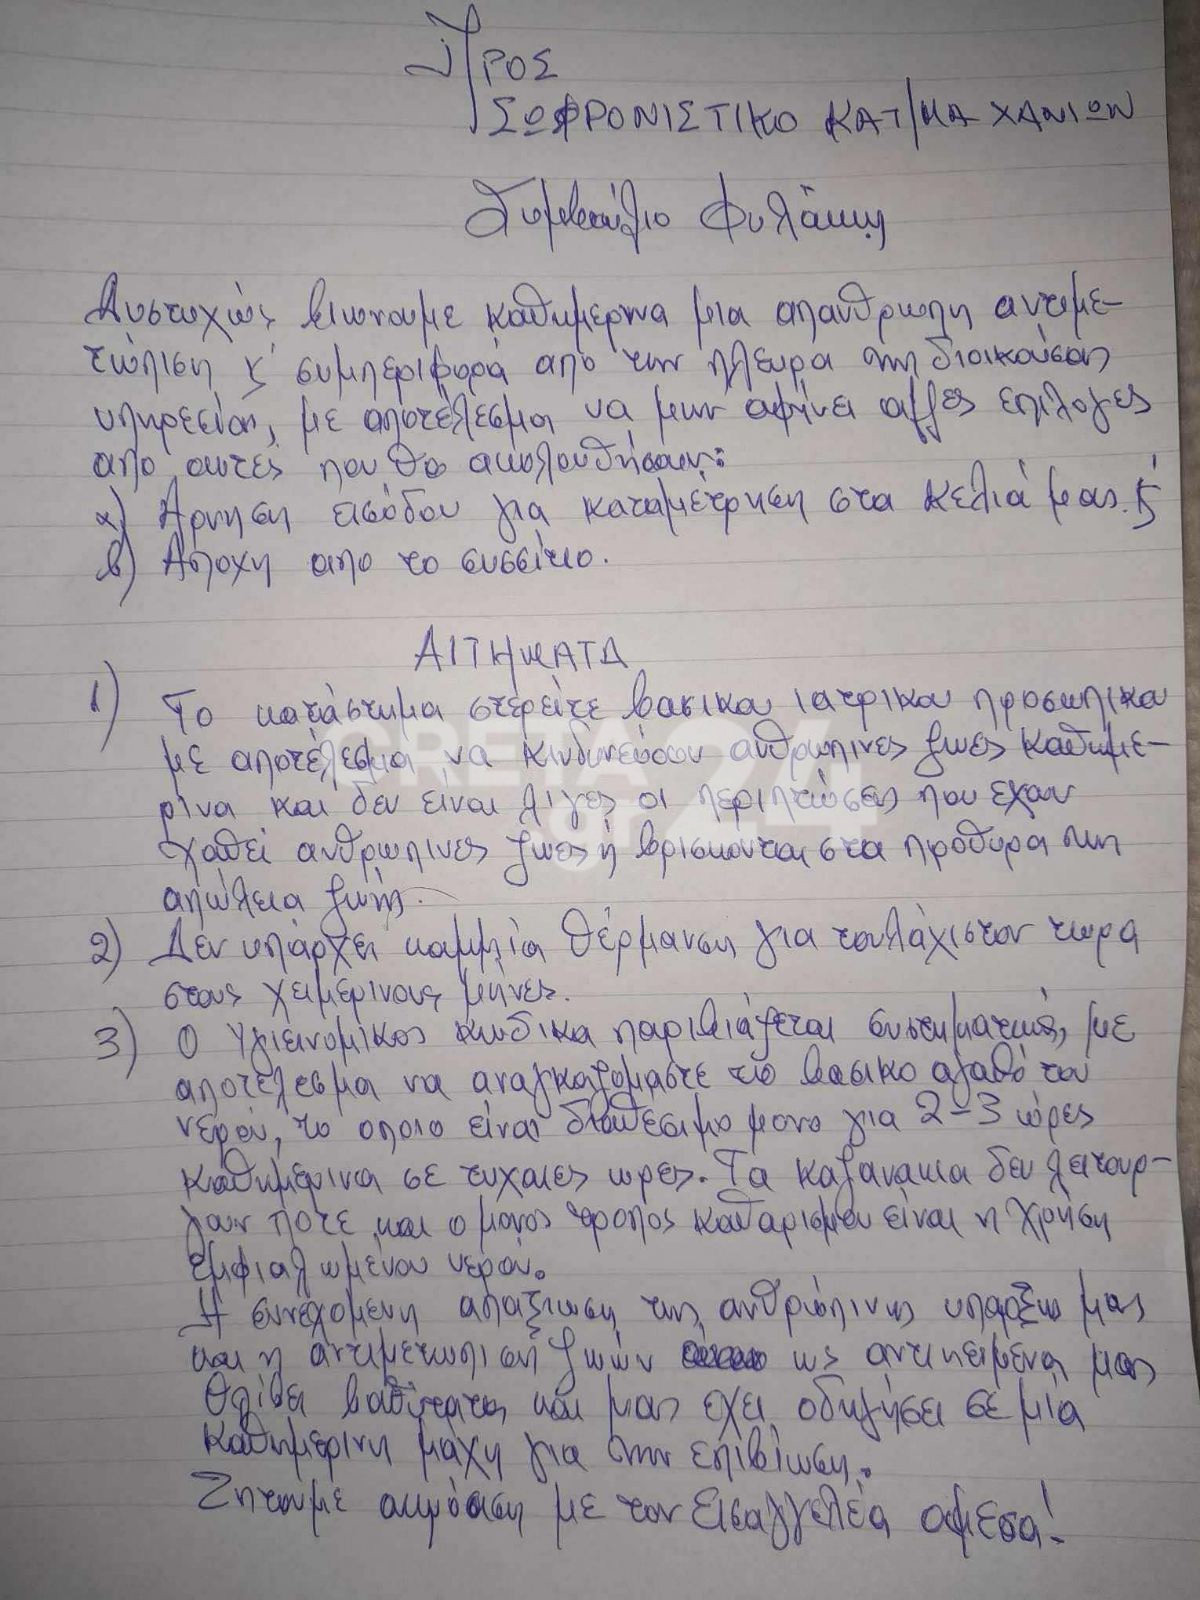 Προς
ΣΩΦΡΟΝΙΣΤΙΚΟ ΚΑΤ/ΜΑ ΧΑΝΙΩΝ
Συμβούλιο Φυλάκης
Δυστυχώς βιωνουμε καθημερινα μια απανθρωπη αντιμε-
τώπιση κ' συμπεριφορά απο την πλευρα της διοικούσας
υπηρεσίας, με αποτέλεσμα να μην αφήνει αλλες επιλογες
απο αυτές που θα ακολουθήσουν:
α) Αρνηση εισόδου για καταμέτρηση στα κελιά μας. κ'
β) Αποχη απο το συσσίτιο.
ΑΙΤΗΜΑΤΑ
1) Το κατάστημα στερείτε βασικου ιατρικου προσωπικου
με αποτέλεσμα να κινδυνεύουν ανθρωπινες ζωες καθημε-
ρινα και δεν είναι λιγες οι περιπτώσεις που εχουν
χαθεί ανθρωπινες ζωες ή βρισκονται στα προθυρα της
απώλεια ζωής.
2) Δεν υπάρχει καμμία θέρμανση για τουλάχιστον τωρα
στους χειμερινους μήνες.
3) Ο Υγιεινομικος κωδικα παραβιάζεται συστηματικά, με
αποτέλεσμα να αναγκαζομαστε το βασικο αγαθό του
νερού, το οποιο είναι διαθεσιμο μονο για 2-3 ώρες
καθημερινα σε τυχαιες ωρες. Τα καζανακια δεν λειτουρ-
γουν ποτε και ο μονος τροπος καθαρισμου είναι η χρήση
εμφιαλωμένου νερού.
Η συνεχομενη απαξιωση της ανθρώπινης υπαρξης μας
και η αντιμετωπιση ζωών ως αντικειμένα μας
θλίβει βαθύτατα και μας εχει οδηγήσει σε μία
καθημερινη μάχη για την επιβίωση.
Ζητουμε ακρόαση με τον Εισαγγελέα αμεσα!
CRETA
24
gr